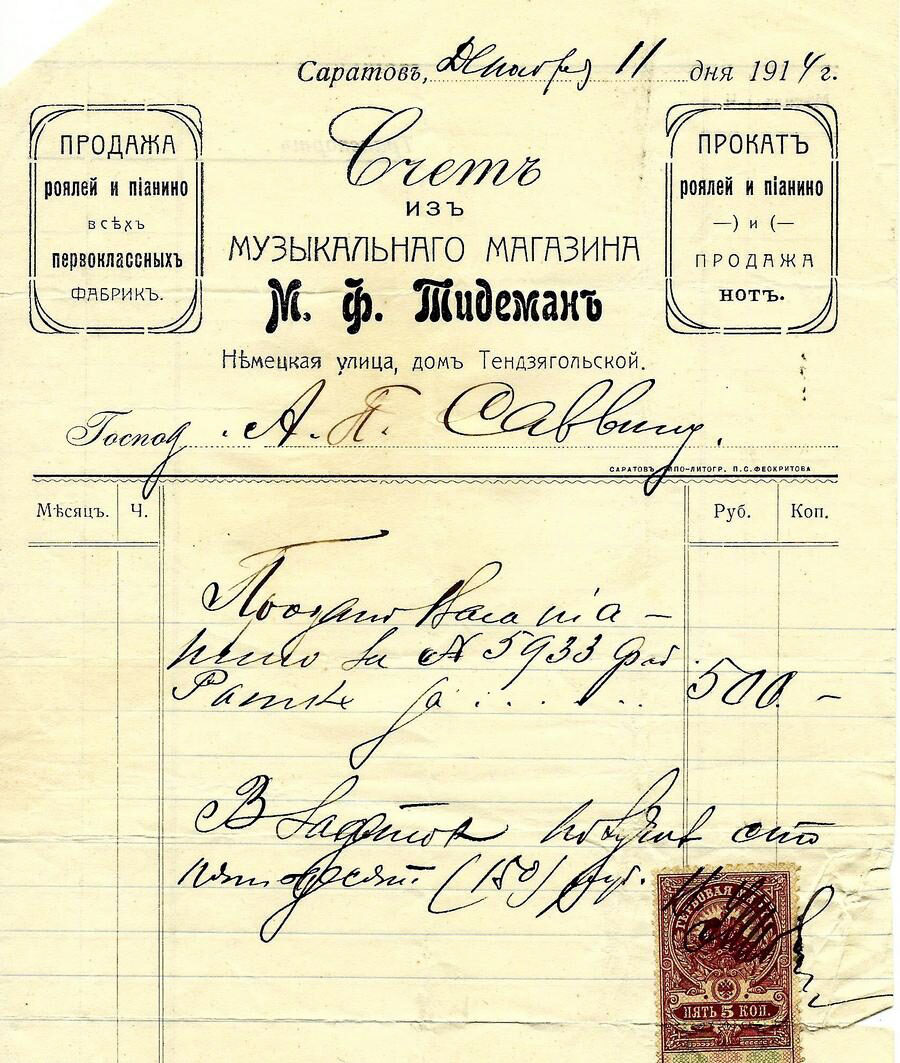 Саратовъ, Декабря 11 дня 1914 г.
ПРОДАЖА
роялей и піанино
всѣхъ
первоклассныхъ
ФАБРИКЪ.
Счетъ
ИЗЪ
МУЗЫКАЛЬНАГО МАГАЗИНА
М. Ф. Тидеманъ
Нѣмецкая улица, домъ Тендзягольской.
ПРОКАТЪ
роялей и піанино
—) и (—
ПРОДАЖА
НОТЪ.
Господ А. П. Саввину.
САРАТОВЪ, ТИПО-ЛИТОГР. П. С. ФЕОКРИТОВА
Мѣсяцъ. Ч. Руб. Коп.
Продано Вамъ піа-
нино за № 5933
Ратке за 500. —
В задаток получив сто
пятьдесят (150) руб.
ГЕРБОВАЯ МАРКА
ПЯТЬ 5 КОП.